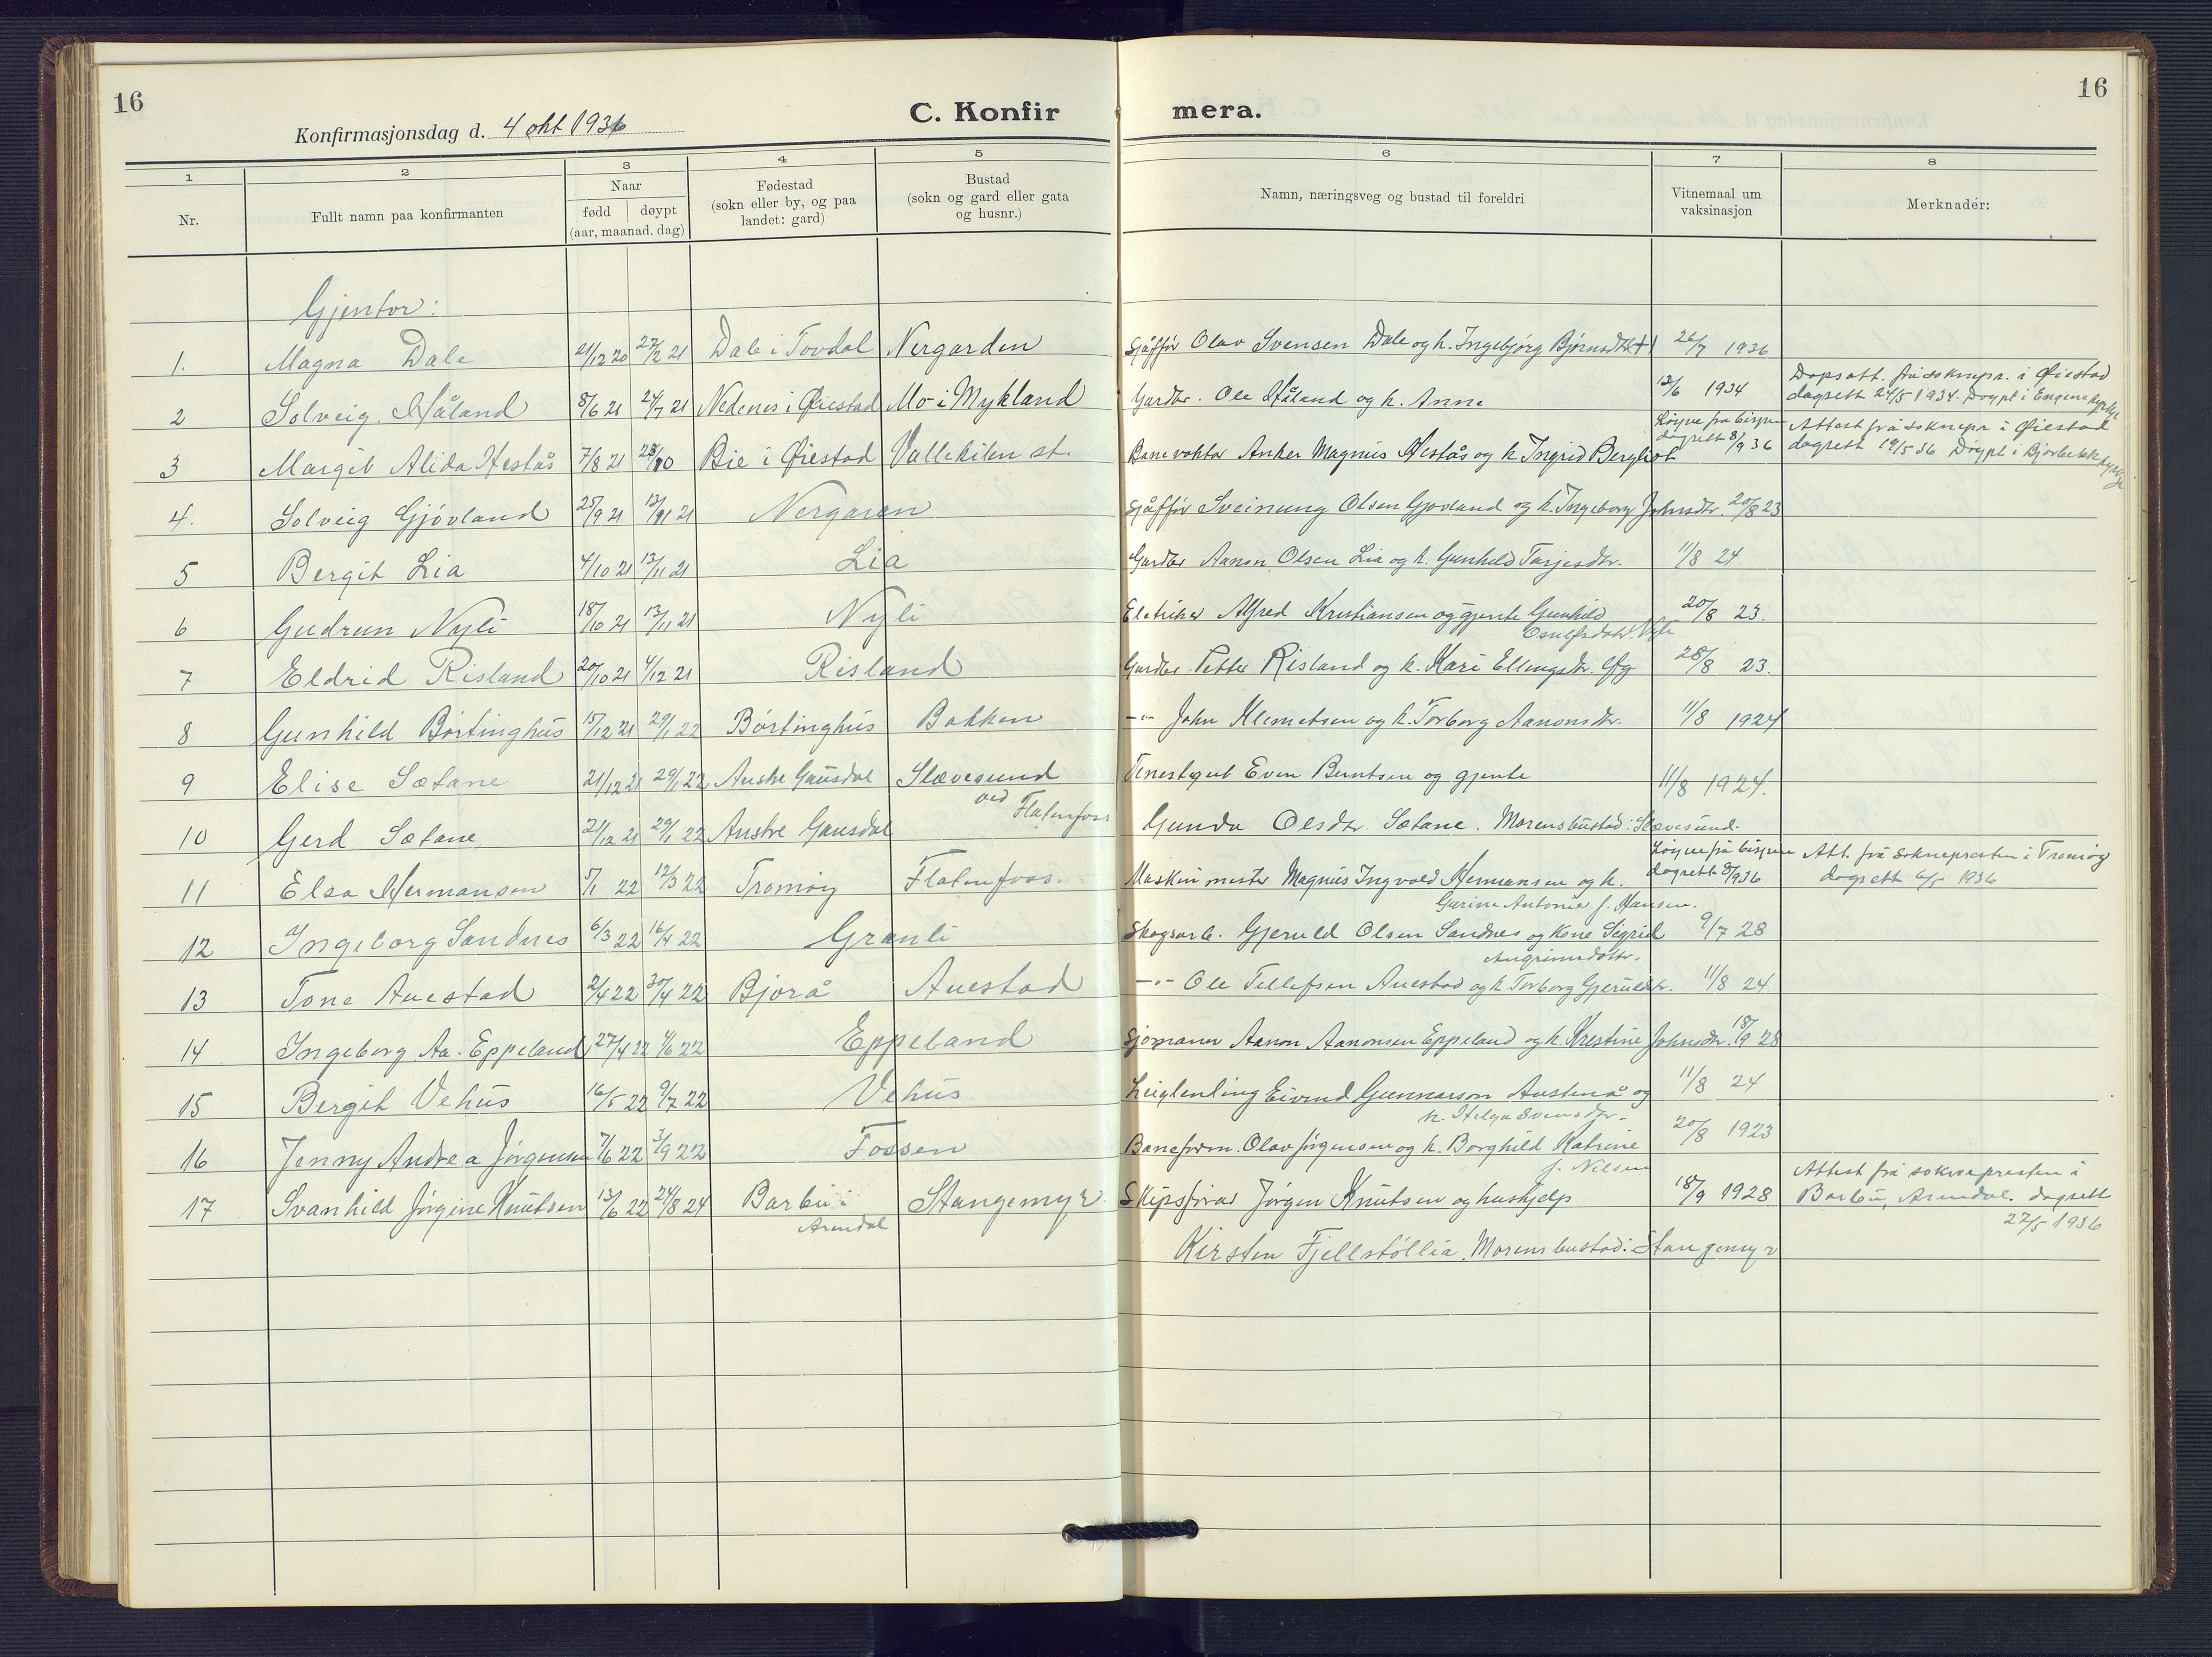 16
Konfirmasjonsdag d. 4 okt 1936
C. Konfir
mera.
16
1 2 3 4 5 6 7 8
Nr.
Fullt namn paa konfirmanten
Naar
fødd døypt
(aar, maanad. dag)
Fødestad
(sokn eller by, og paa
landet: gard)
Bustad
(sokn og gard eller gata
og husnr.)
Namn, næringsveg og bustad til foreldri
Vitnemaal um
vaksinasjon
Merknader:
Gjentor:
1. Magna Dale 21/12 20 27/2 21 Dale i Tovdal Nergarden Sjåffør Olav Svensen Dale og k. Ingebjørg Bjørnsdtr 26/7 1936
2 Solveig Håland 8/6 21 24/7 21 Nedenes i Øiestad Mo i Mykland Gardbr. Ole Håland og k. Anne 12/6 1934
Dopsatt. frå soknepr. i Øiestad
dagsett 24/5 1934. Døypt i Engene kyrkje
3 Margit Alida Hestås 7/8 21 Bie i Øiestad Vallekilen st. Banevakta Anker Magnus Hestås og k Ingrid Bergliot
Løyve frå bispen
dagsett 8/9 36
Attest frå soknepr i Øiestad
dagsett 19/5 36 Døypt i Bjorbekk kyrkje
4. Solveig Gjøvland 25/9 21 13/11 21 Nergaren Sjåffør Sveinung Olsen Gjøvland og k. Ingeborg Johnsdtr. 20/8 23
5 Bergit Lia 4/10 21 13/11 21 Lia Gardbr Aanon Olsen Lia og k. Gunhild Tarjeisdtr. 11/8 24
6 Gudrun Nyli 18/10 21 13/11 21 Nyli Eletriker Alfred Kristiansen og gjente Gunhild 20/8 23.
Osulfsdotr. Nyli
7 Eldrid Risland 20/10 21 4/12 21 Risland Gardbr. Petter Risland og k. Kari Ellingsdtr. 28/8 23.
8 Gunhild Börtinghus 15/12 21 29/1 22 Börtinghus Bakken -"- John Klemetsen og k. Torborg Aanonsdtr. 11/8 1924
9 Elise Sætane 21/12 21 29/1 22 Austre Gausdal Slævesund Tenestegut Even Berntsen og gjente 11/8 1924.
ved Flatenfoss
10 Gerd Sætane 21/12 21 29/1 22 Austre Gausdal Gunda Olsdtr. Sætane. Morens bustad: Slævesund.
11 Elsa Hermansen 5/1 22 12/3 22 Tromøy Flatenfoss. Maskinmester Magnus Ingvald Hermansen og k.
Løyve frå bispen
dagsett 8/9 36
Att. frå soknepresten i Tromøy
dagsett 6/5 1936
Gurine Antonie f. Hansen.
12 Ingeborg Sandnes 6/3 22 16/4 22 Granli Skogsarb. Gjeruld Olsen Sandnes og kone Sigrid 9/7 28
Angrimsdottr.
13 Tone Auestad 2/4 22 30/4 22 Bjorå Auestad -"- Ole Tellefsen Auestad og k Torborg Gjeruldsdtr. 11/8 24
14 Ingeborg Aa. Eppeland 27/4 22 4/6 22 Eppeland Sjømann Aanon Aanonsen Eppeland og k. Krestine Johnsdtr. 18/9 28
15 Bergit Vehus 16/5 22 9/7 22 Vehus Leiglending Eivind Gunnarson Austenå og 11/8 24
k. Helga Svensdtr.
16 Jenny Andrea Jørgensen 7/6 22 3/9 22 Fossen Baneform. Olav Jørgensen og k. Borghild Katrine 20/8 1923
f. Nilsen
17 Svanhild Jørgine Knutsen 13/6 22 24/8 24 Barbu i Stangemyr Skipsførar Jørgen Knutsen og hushjelp 18/9 1928
Arendal
Attest frå soknepresten i
Barbu, Arendal. dagsett
22/5 1936
Kirsten Fjellstøllia. Morens bustad: Stangemyr